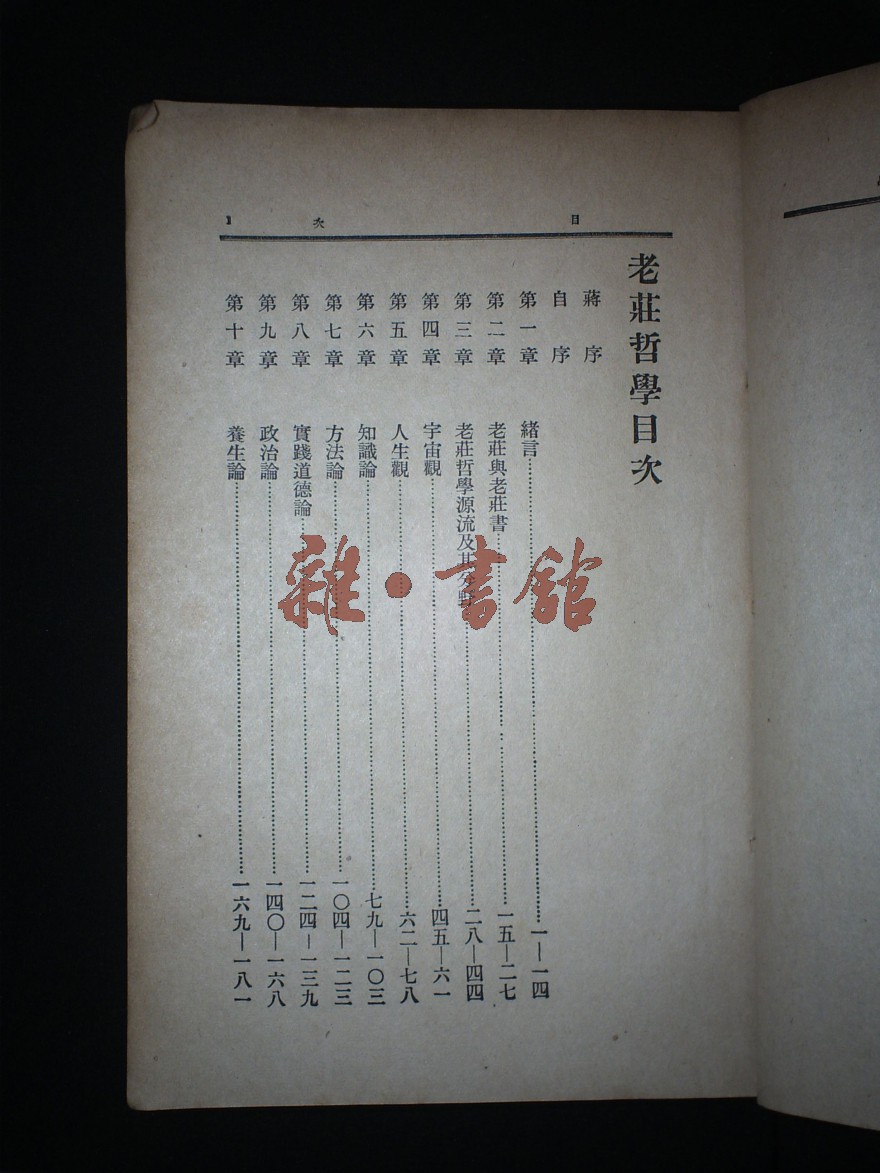 目次 1
老莊哲學目次
蔣序
自序
第一章 緒言 一—一四
第二章 老莊與老莊書 一五—二七
第三章 老莊哲學源流及其分野 二八—四四
第四章 宇宙觀 四五—六一
第五章 人生觀 六二—七八
第六章 知識論 七九—一〇三
第七章 方法論 一〇四—一二三
第八章 實踐道德論 一二四—一三九
第九章 政治論 一四〇—一六八
第十章 養生論 一六九—一八一
雜·書館